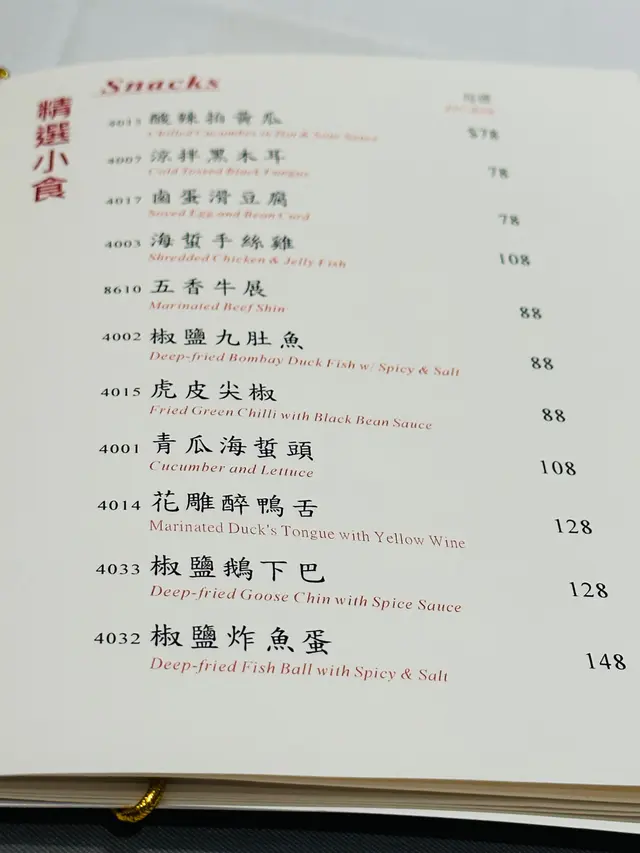 精選小食
Snacks
每碟
4013 酸辣拍黃瓜 $78
Chilled Cucumber in Hot & Sour Sauce
4007 涼拌黑木耳 78
Cold Tossed Black Fungus
4017 鹵蛋滑豆腐 78
Soyed Egg and Bean Curd
4003 海蜇手絲雞 108
Shredded Chicken & Jelly Fish
8610 五香牛展 88
Marinated Beef Shin
4002 椒鹽九肚魚 88
Deep-fried Bombay Duck Fish w/ Spicy & Salt
4015 虎皮尖椒 88
Fried Green Chilli with Black Bean Sauce
4001 青瓜海蜇頭 108
Cucumber and Lettuce
4014 花雕醉鴨舌 128
Marinated Duck's Tongue with Yellow Wine
4033 椒鹽鵝下巴 128
Deep-fried Goose Chin with Spice Sauce
4032 椒鹽炸魚蛋 148
Deep-fried Fish Ball with Spicy & Salt